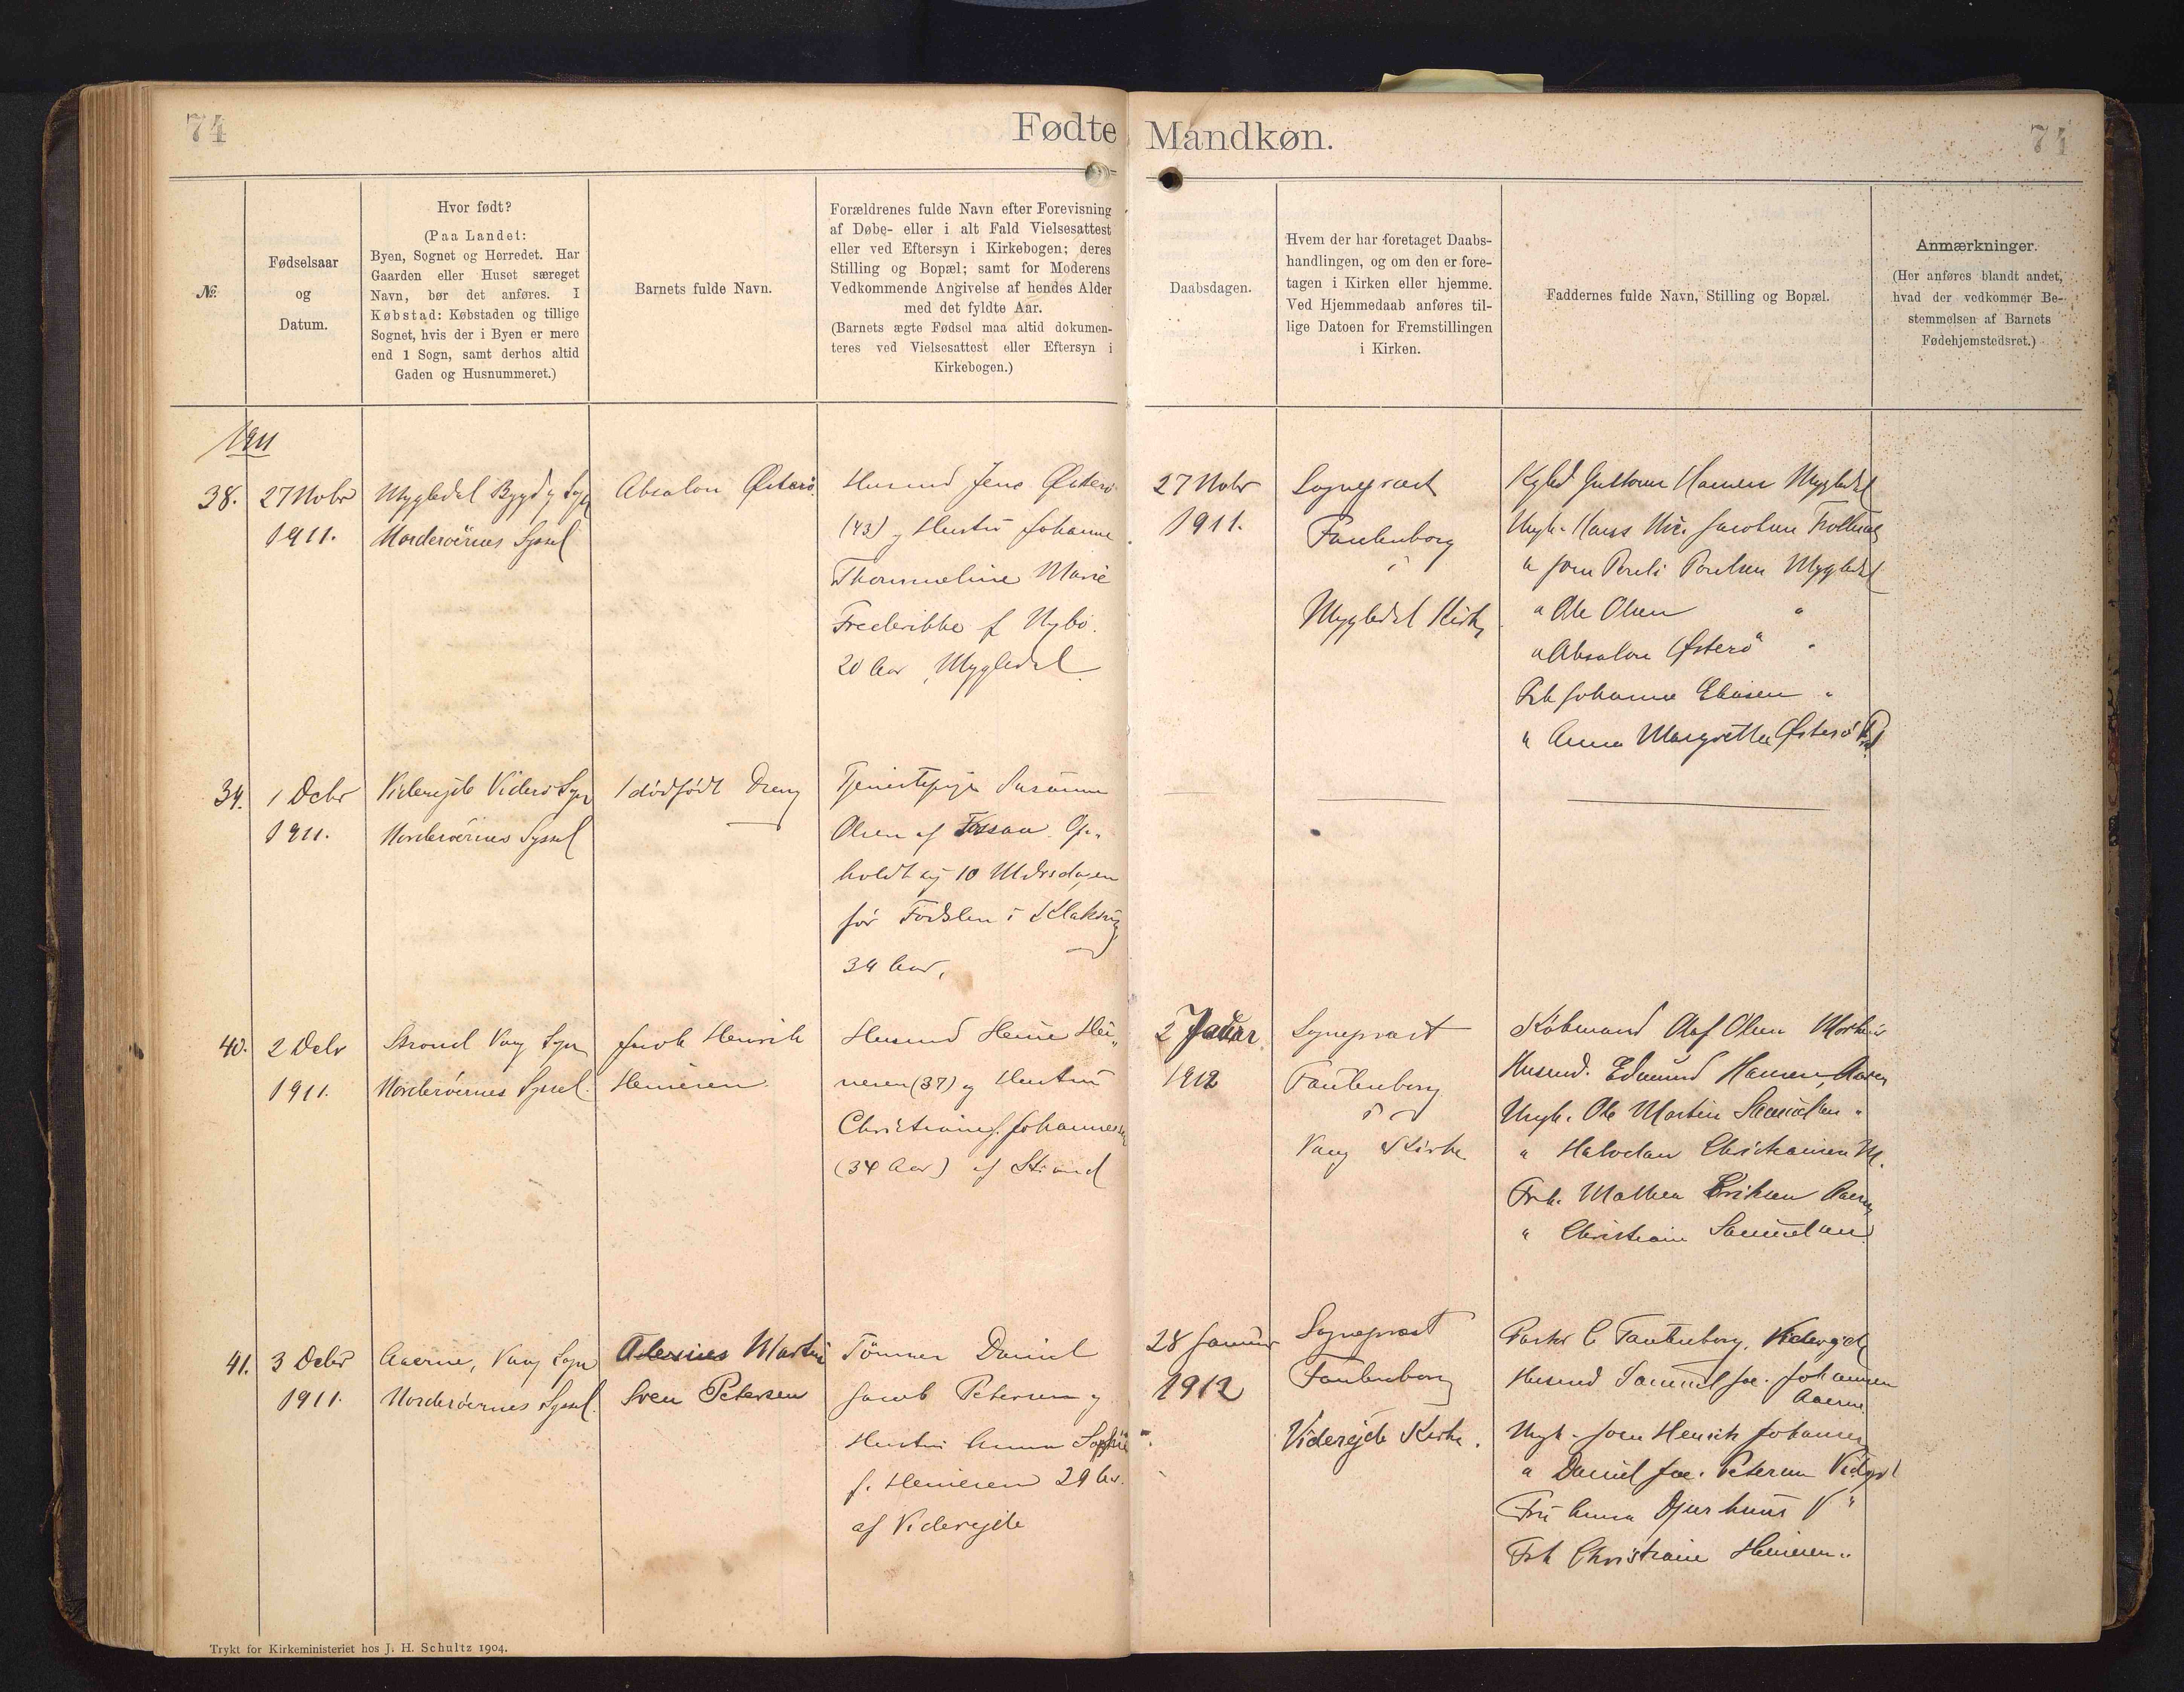 74
Fødte
Mandkøn.
74
№.
Fødselsaar
og
Datum.
Hvor født?
(Paa Landet:
Byen, Sognet og Herredet. Har
Gaarden eller Huset særeget
Navn, bør det anføres. I
Købstad: Købstaden og tillige
Sognet, hvis der i Byen er mere
end 1 Sogn, samt derhos altid
Gaden og Husnummeret.)
Barnets fulde Navn.
Forældrenes fulde Navn efter Forevisning
af Døbe- eller i alt Fald Vielsesattest
eller ved Eftersyn i Kirkebogen; deres
Stilling og Bopæl; samt for Moderens
Vedkommende Angivelse af hendes Alder
med det fyldte Aar.
(Barnets ægte Fødsel maa altid dokumen-
teres ved Vielsesattest eller Eftersyn i
Kirkebogen.)
Daabsdagen.
Hvem der har foretaget Daabs-
handlingen, og om den er fore-
tagen i Kirken eller hjemme.
Ved Hjemmedaab anføres til-
lige Datoen for Fremstillingen
i Kirken.
Faddernes fulde Navn, Stilling og Bopæl.
Anmærkninger.
(Her anføres blandt andet,
hvad der vedkommer Be-
stemmelsen af Barnets
Fødehjemstedsret.)
1911
38.
27 Novbr
1911.
Mygledal Bygd og Sogn
Norderöernes Syssel
Absalon Østerö.
Husmd Jens Østerö
(43) og Hustru Johanne
Thommeline Marie
Frederikke f Nybo.
20 Aar, Mygledal.
27 Novbr
1911.
Sognepræst
Fautenborg
i
Mygledal Kirke
Hansen Mygledal
Ungk. Hans Jacobsen
" Joen Poulsen Mygledal
" Ole Olsen "
" Absalon Østerö "
Frk Johanne Eliasen "
" Anna Margrethe Østerö
39.
1 Decbr
1911.
Viderejde Viderö Sogn
Norderöernes Syssel
1 dödfödt Dreng
Tjenestepige Susanne
Olsen af Op-
holdt sig 10 Mdrsdagen
för Födslen i Klaksvig
34 Aar.
40.
2 Decbr
1911.
Strond Vaag Sogn
Norderöernes Syssel.
Jacob Henrik
Heinesen
Husmd Heine Hei-
nesen (37) og Hustru
Christiane f. Johannesen
(34 Aar) af Strand
2 Januar
1912
Sognepræst
Fautenborg
i
Vaag Kirke
Købmand Olaf Olsen
Husmd. Edmund Hansen,
Ungk. Ole Martin Samuelsen "
" Halvdan Christiansen
Frk. Mathea Eriksen
" Christiane Samuelsen
41.
3 Decbr
1911.
Aaerne, Vaag Sogn
Norderöernes Syssel.
Martin
Sven Petersen
Tömrer Daniel
Jacob Petersen og
Hustru Anna Sophie
f. Heinesen 29 Aar.
af Viderejde
28 Januar
1912
Sognepræst
Fautenborg
Viderejde Kirke.
Pastor C Fautenborg, Viderejde
Husmd Samuel Jac. Johannesen
Aaerne
Ungk. Joen Henrik Johansen
" Daniel Jac. Petersen
Fru Anna Djurhuus V "
Frk Christiane Heinesen "
Trykt for Kirkeministeriet hos J. H. Schultz 1904.